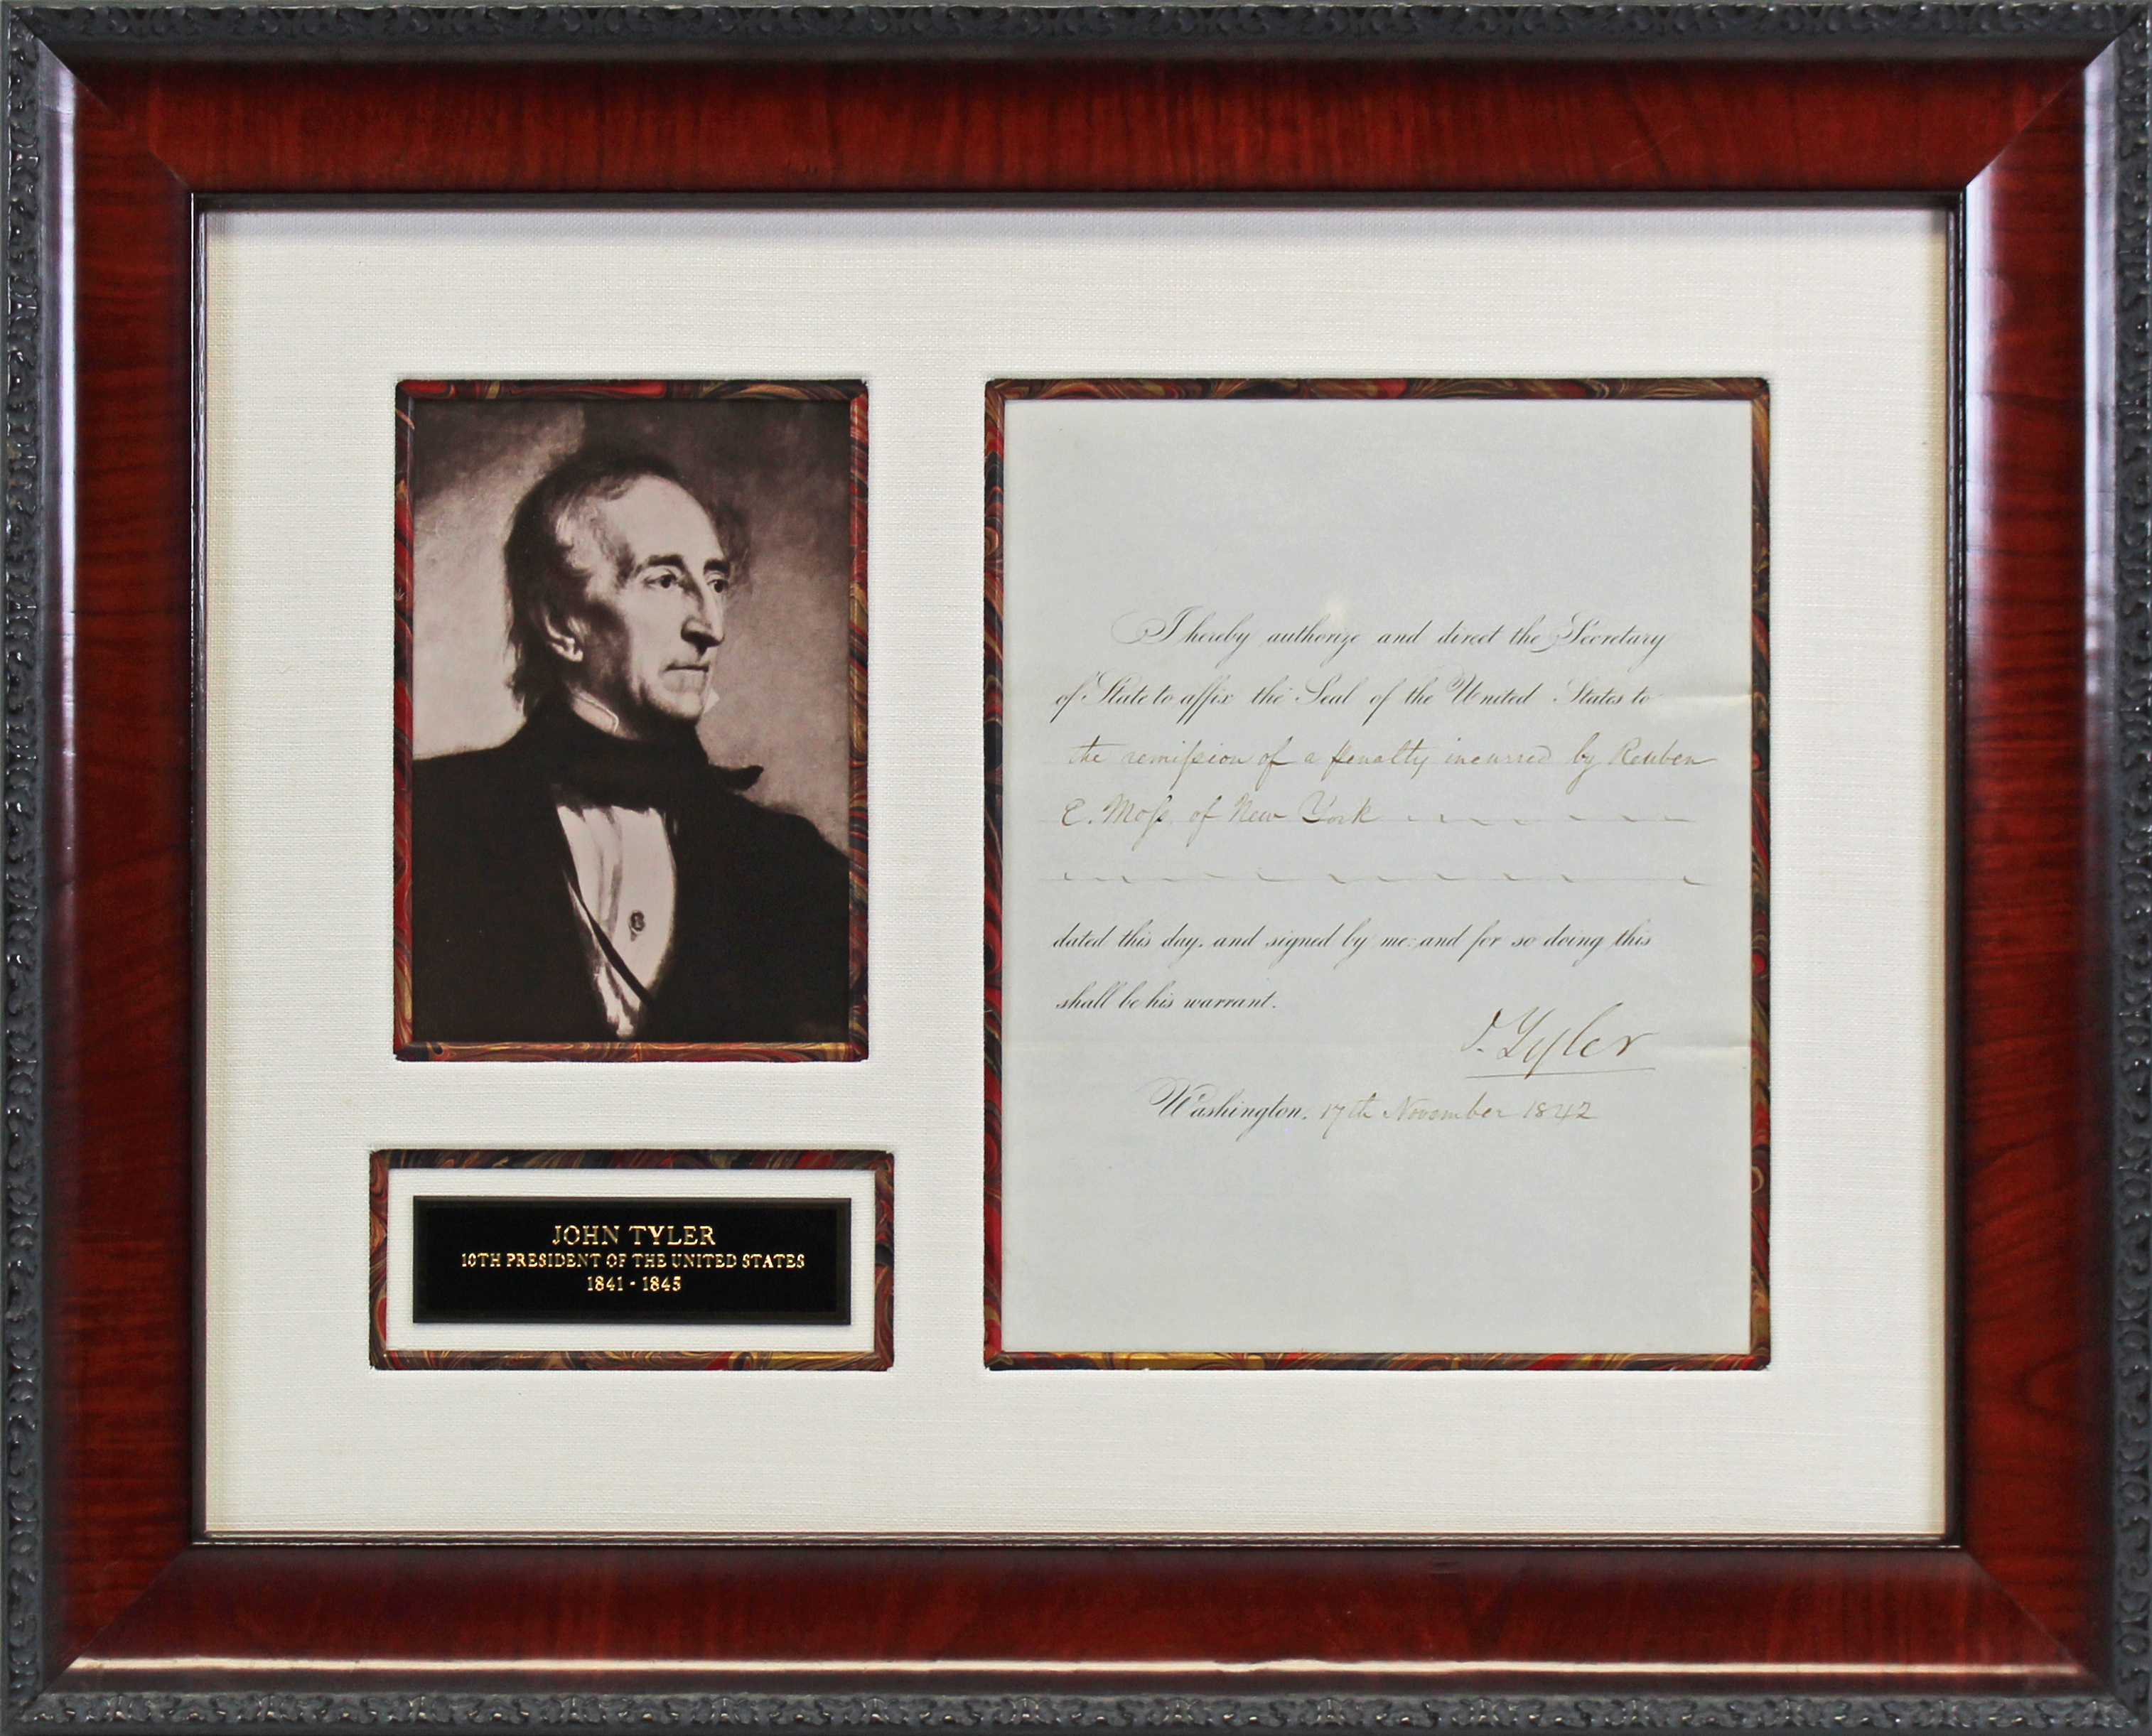 I hereby authorize and direct the Secretary
of State to affix the Seal of the United States to
the remiſsion of a penalty incurred by Reuben
E. Moſs of New York
dated this day, and signed by me: and for so doing this
shall be his warrant.
J. Tyler
Washington, 17th November 1842
JOHN TYLER
10TH PRESIDENT OF THE UNITED STATES
1841 - 1845